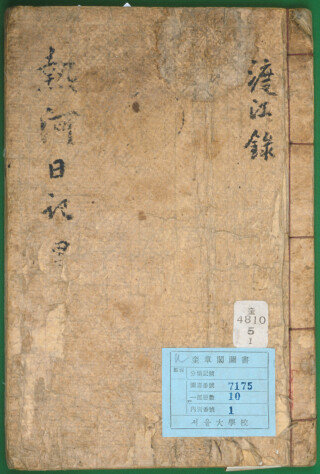 渡江錄
熱河日記
奎
4810
5
1
奎章閣圖書
分類記號
圖書番號 7175
一部冊數 10
內別番號 1
서울大學校